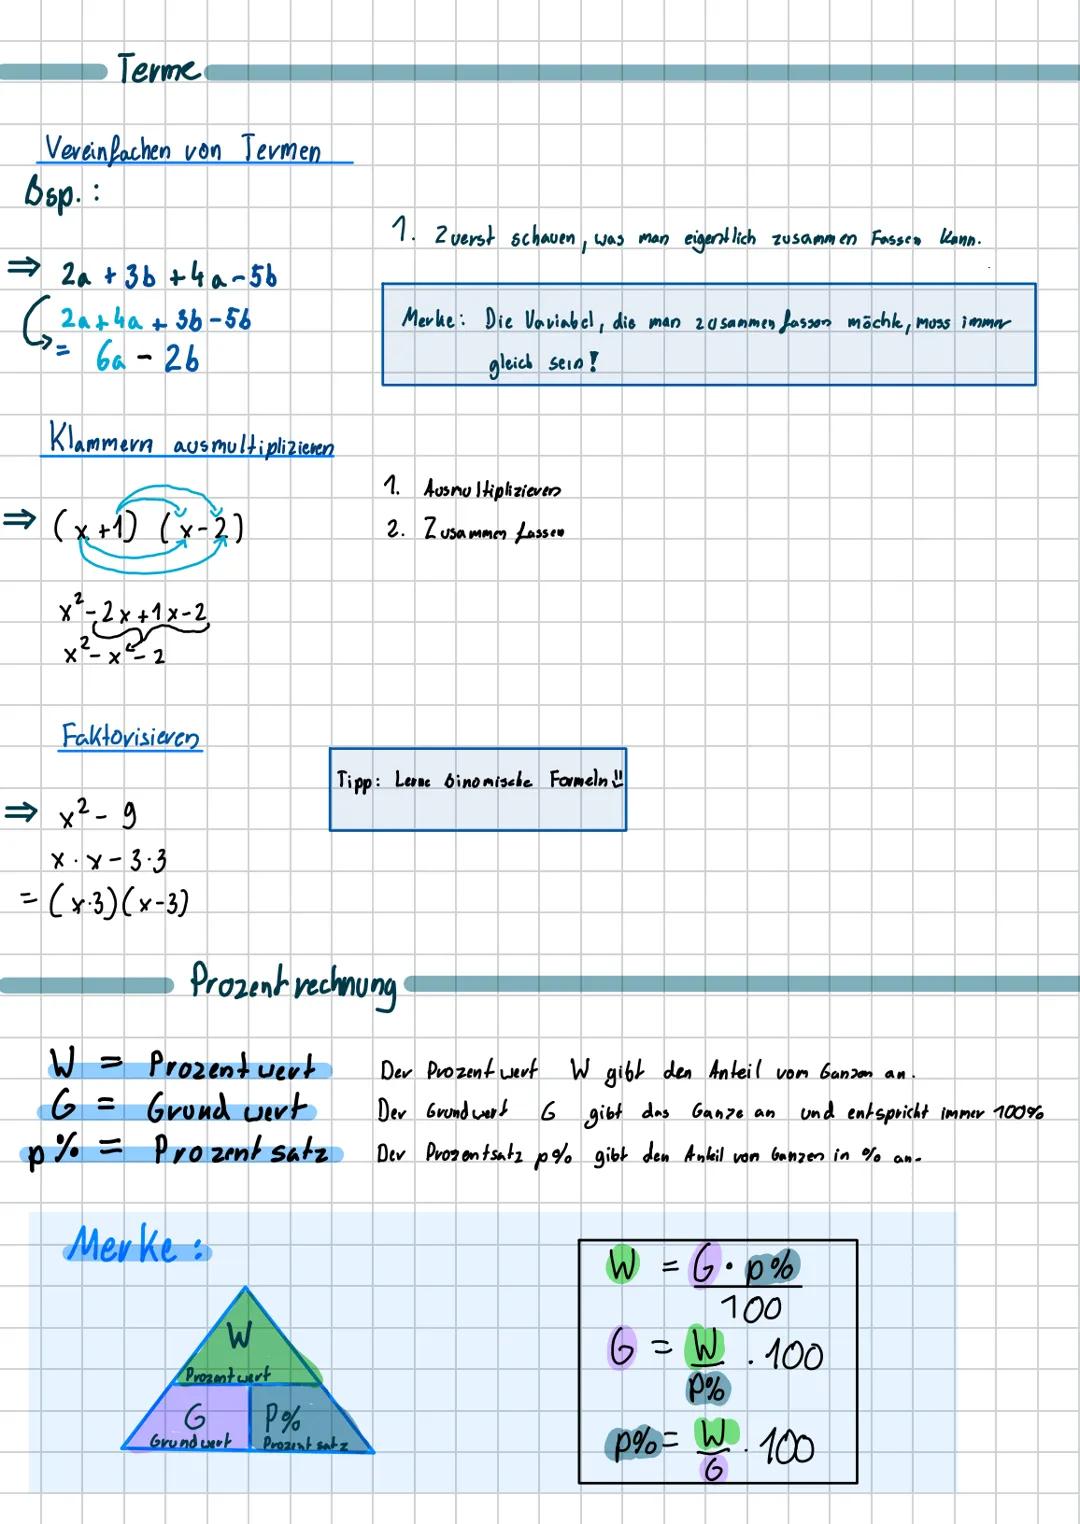 Terme
Vereinfachen von Termen
Bsp. :
1. Zuerst schauen, was man eigentlich zusammen fassen kann.
⇒ 2a + 3b + 4a - 5b
2a + 4a + 3b - 5b
= 6a - 2b
Merke: Die Variabel, die man zusammen fassen möchte, muss immer
gleich sein!
Klammern ausmultiplizieren
1. Ausmultiplizieren
2. Zusammen fassen
⇒ (x+1) (x-2)
x² - 2x + 1x - 2
x² - x - 2
Faktorisieren
Tipp: Lerne Binomische Formeln!!
⇒ x² - 9
x · x - 3·3
= (x·3)(x-3)
Prozentrechnung
W = Prozentwert Der Prozentwert W gibt den Anteil vom Ganzen an.
G = Grundwert Der Grundwert G gibt das Ganze an und entspricht immer 100%
p% = Prozentsatz Der Prozentsatz p% gibt den Anteil von Ganzen in % an.
Merke:
W
Prozentwert
G P%
Grundwert Prozentsatz
W = G · p%
100
G = W · 100
P%
p% = W · 100
G